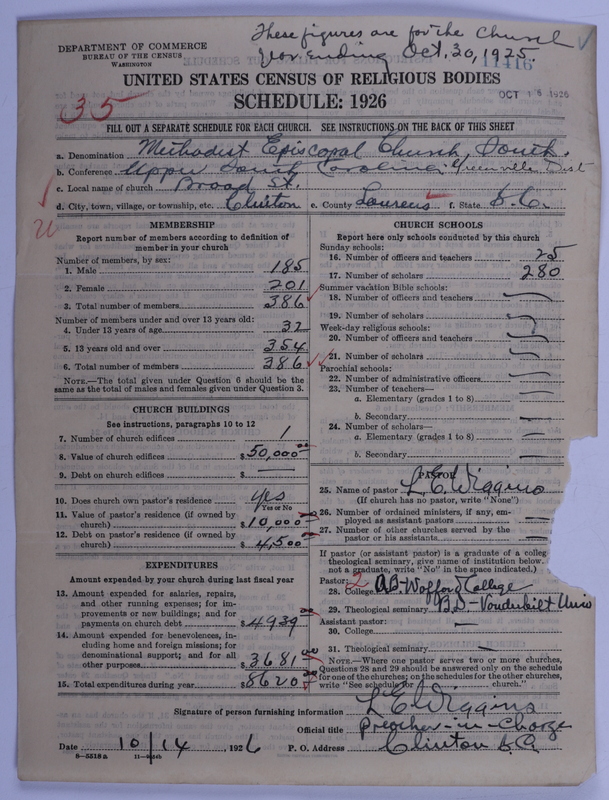 These figures are for the Church
year ending Oct. 20, 1925.
11416
OCT 15 1926
DEPARTMENT OF COMMERCE
BUREAU OF THE CENSUS
WASHINGTON
UNITED STATES CENSUS OF RELIGIOUS BODIES
SCHEDULE: 1926
35
FILL OUT A SEPARATE SCHEDULE FOR EACH CHURCH. SEE INSTRUCTIONS ON THE BACK OF THIS SHEET
a. Denomination Methodist Episcopal Church, South.
b. Conference Upper South Carolina, Greenville Dist
c. Local name of church Broad St.
d. City, town, village, or township, etc. Clinton e. County Laurens f. State S.C.
MEMBERSHIP
Report number of members according to definition of member in your church
Number of members, by sex:
1. Male 185
2. Female 201
3. Total number of members 386
Number of members under and over 13 years old:
4. Under 13 years of age 32
5. 13 years old and over 354
6. Total number of members 386
NOTE.—The total given under Question 6 should be the same as the total of males and females given under Question 3.
CHURCH BUILDINGS
See instructions, paragraphs 10 to 12
7. Number of church edifices 1
8. Value of church edifices $50,000 00
9. Debt on church edifices $ —
10. Does church own pastor's residence yes
Yes or No
11. Value of pastor's residence (if owned by church) $10,000 00
12. Debt on pastor's residence (if owned by church) $4,500 00
EXPENDITURES
Amount expended by your church during last fiscal year
13. Amount expended for salaries, repairs, and other running expenses; for improvements or new buildings; and for payments on church debt $4939
14. Amount expended for benevolences, including home and foreign missions; for denominational support; and for all other purposes $3681 00
15. Total expenditures during year $8620 00
CHURCH SCHOOLS
Report here only schools conducted by this church
Sunday schools:
16. Number of officers and teachers 25
17. Number of scholars 280
Summer vacation Bible schools:
18. Number of officers and teachers
19. Number of scholars
Week-day religious schools:
20. Number of officers and teachers
21. Number of scholars
Parochial schools:
22. Number of administrative officers
23. Number of teachers—
a. Elementary (grades 1 to 8)
b. Secondary
24. Number of scholars—
a. Elementary (grades 1 to 8)
b. Secondary
PASTOR
25. Name of pastor L. E. Wiggins
(If church has no pastor, write "None")
26. Number of ordained ministers, if any, employed as assistant pastors —
27. Number of other churches served by the pastor or his assistants —
If pastor (or assistant pastor) is a graduate of a colleg
theological seminary, give name of institution below.
not a graduate, write "No" in the space indicated.)
Pastor: 2
28. College A.B. Wofford College
29. Theological seminary B.D—Vanderbilt Univ
Assistant pastor:
30. College —
31. Theological seminary —
NOTE.—Where one pastor serves two or more churches, Questions 28 and 29 should be answered only on the schedule for one of the churches; on the schedules for the other churches, write "See schedule for church."
Signature of person furnishing information L. E. Wiggins
Official title preacher-in-charge
Date 10/14, 1926 P. O. Address Clinton S.C.
8—5518a